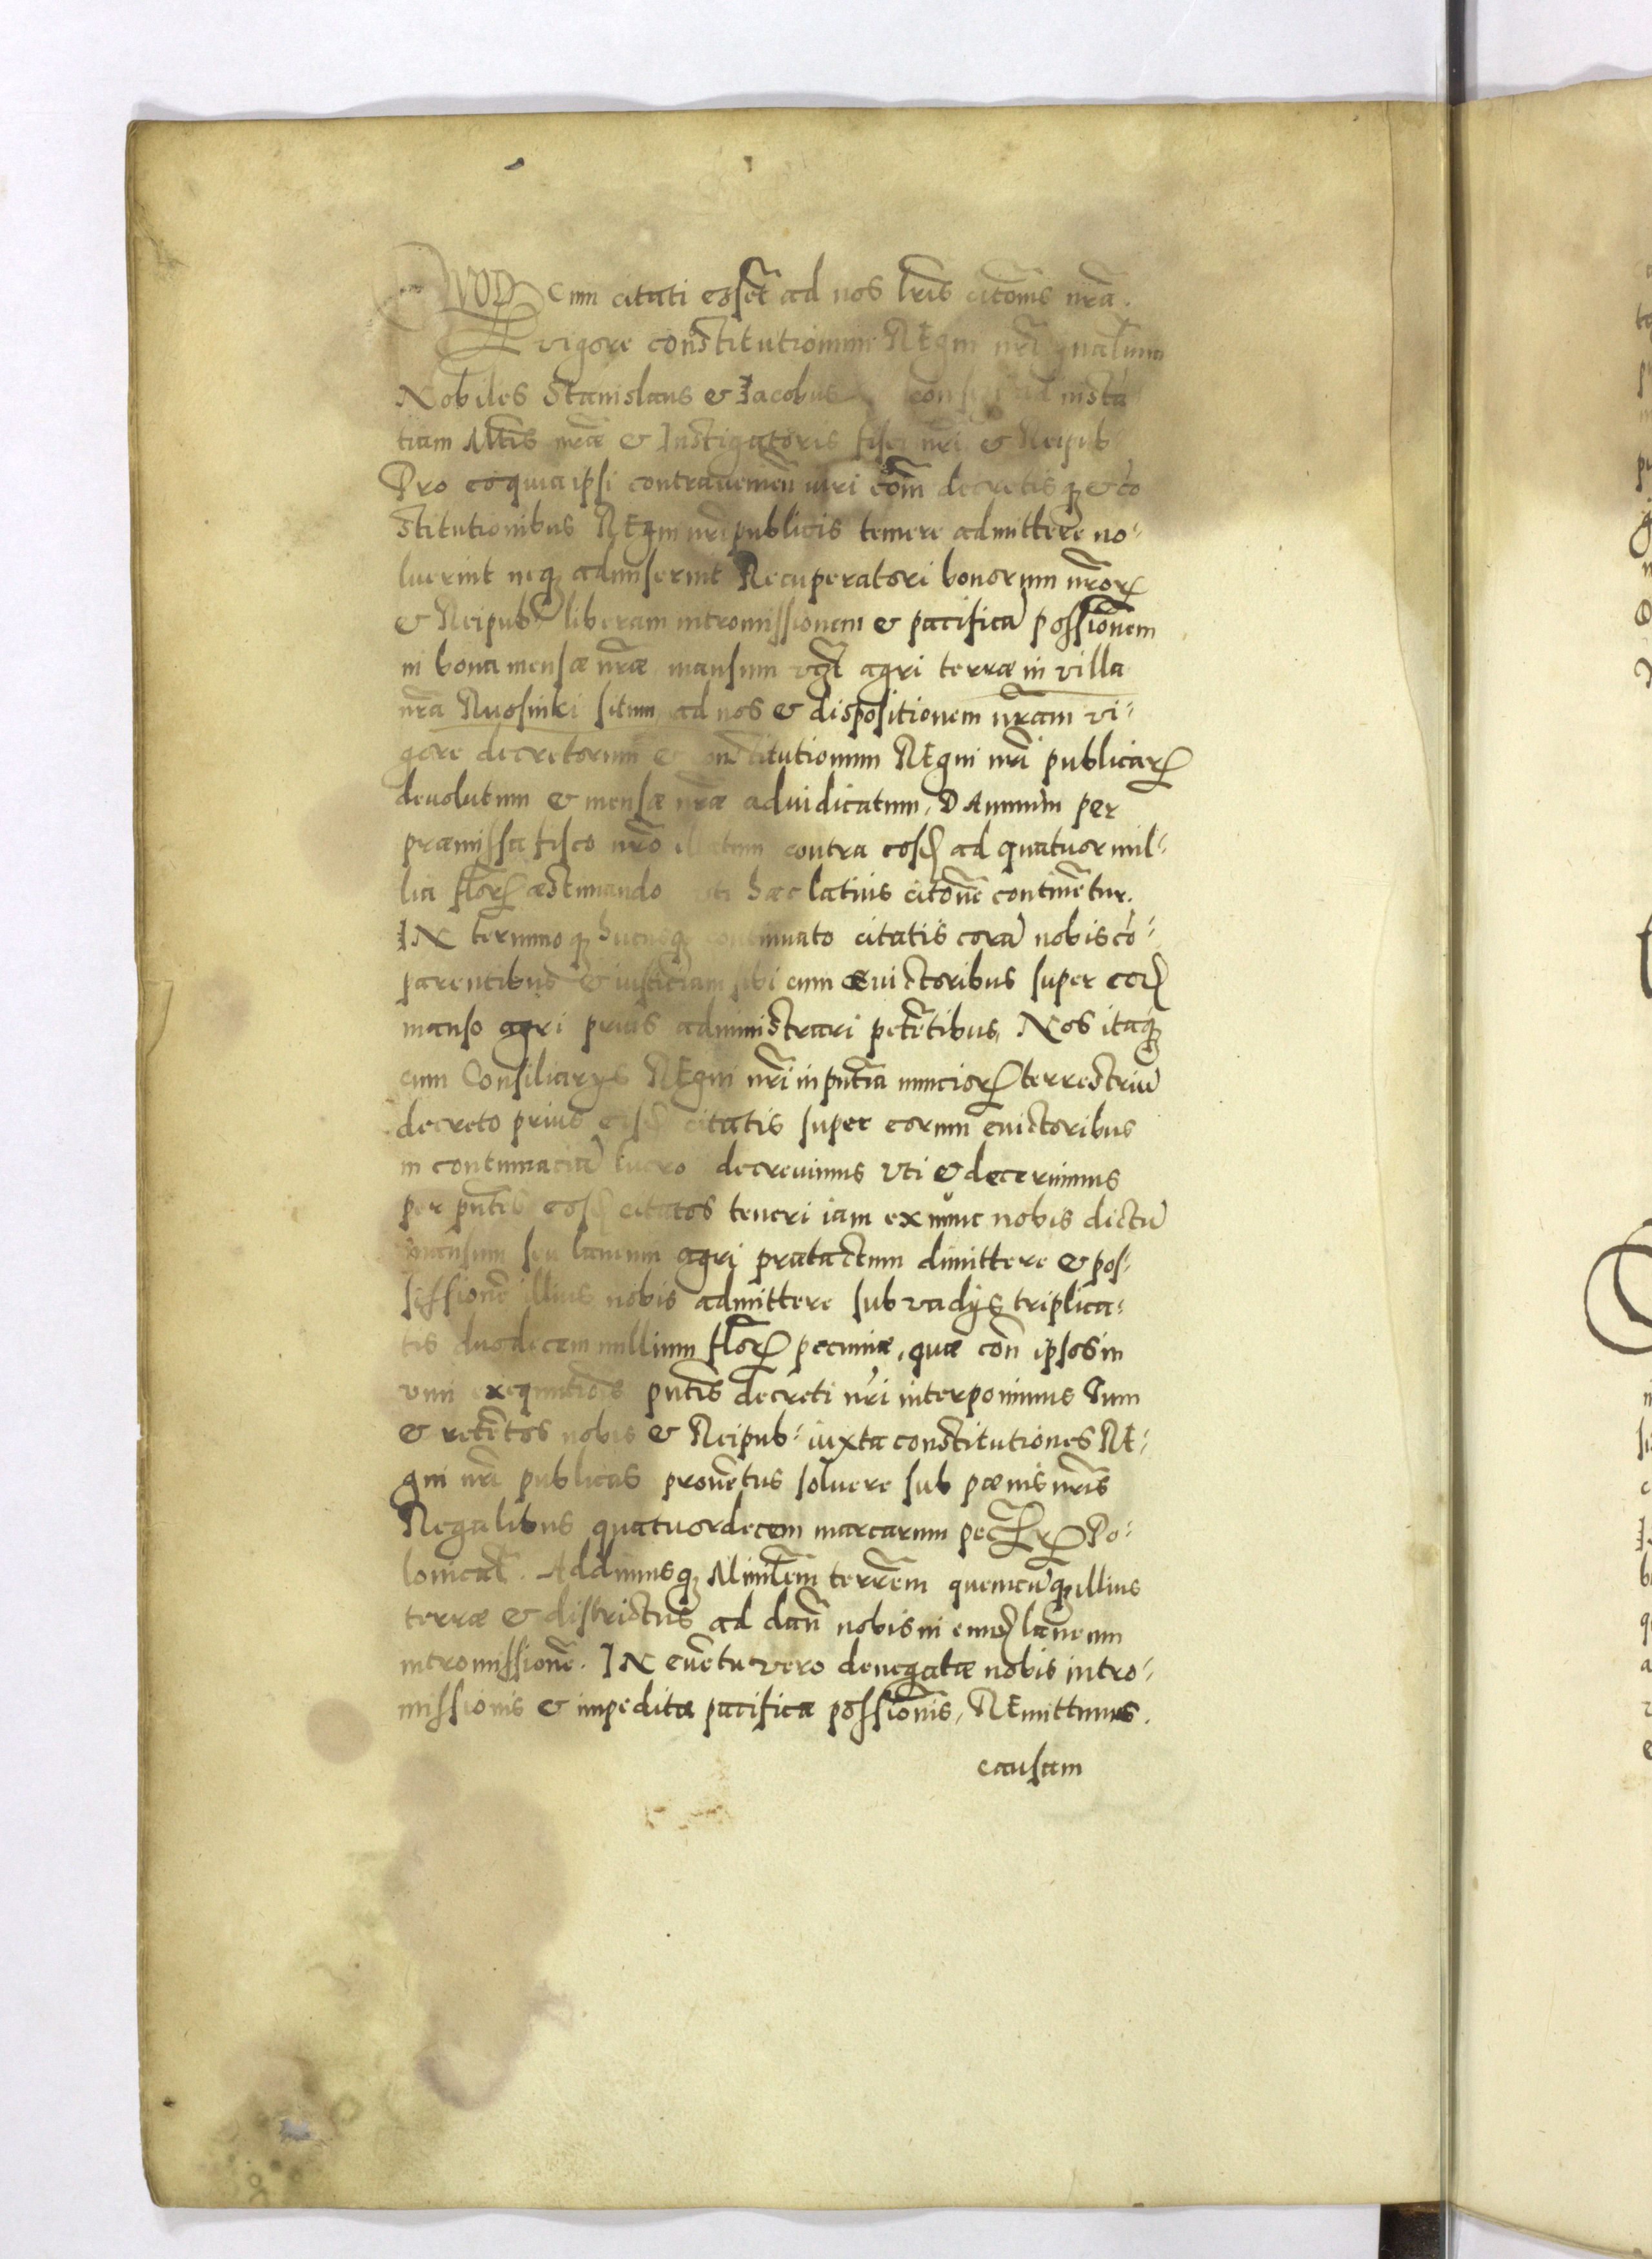 QVOD Cum citati essēt ad nos lr̃is citõnis nr̃a.
vigore constitutionum REgni nr̃i
Nobiles Stanislaus & Iacobus
tiam Mt̃is nr̃æ & Instigatoris fisci nr̃i & Reipub
Pro eo quia ipsi contraveniẽn iuri cõm̃ decretisq₃ & cō
stitutionibus REgni nr̃i publicis temere admittere no-
luerint neq₃ admiserint Recuperatori bonorum nr̃orꝝ
& Reipub: liberam intromissionem & pacificā possionem
in bona mensæ nr̃æ mansum agri terræ in villa
nr̃a Ruosinki situm ad nos & dispositionem nr̃am vi-
gore decretorum & constitutionum REgni nr̃i publicarꝝ
devolutum & mensæ nr̃æ adiudicatum, DAmnum per
præmissa fisco nr̃o illatum contra eosd ad quatuor mil-
lia flor̃ꝝ æstimando uti hæc latius citõne continẽtur.
IN terminoq₃ hucusq₃ continuato citatis corā nobis cō-
parentibus & iusticiam sibi cum evictoribus super eod
manso agri prius administrari petẽtibus, Nos itaq₃
cum Consiliarys REgni nr̃i in pñtia nunciorꝝ terrestriū
decreto prius eisd citatis super eorum evictoribus
in contumaciā lucro decrevimus uti & decernimus
per pñtes eosd citatos teneri iam ex nunc nobis dictū
mansum seu laneum agri prætactum dimittere & pos-
sessionẽ illius nobis admittere sub vadys triplica-
tis duodecem millium flor̃ꝝ pecuniæ, quæ cõn ipsos in
vim exequutiõis pñtis decreti nr̃i interponimus Tum
& retẽtos nobis & Reipub: iuxta constitutiones RE-
gni nr̃i publicas provẽtus solvere sub pœnis nr̃is
Regalibus quatuordecem marcarum pec̃ Po-
lonical̃. Addimusq₃ Ministl̃em terr̃em quemcūq₃ illius
terræ & districtus ad dañ nobis in eund laneum
intromissionẽ. IN evẽtu vero denegatæ nobis intro-
missionis & impeditæ pacificæ possionis, REmittimus.
causam